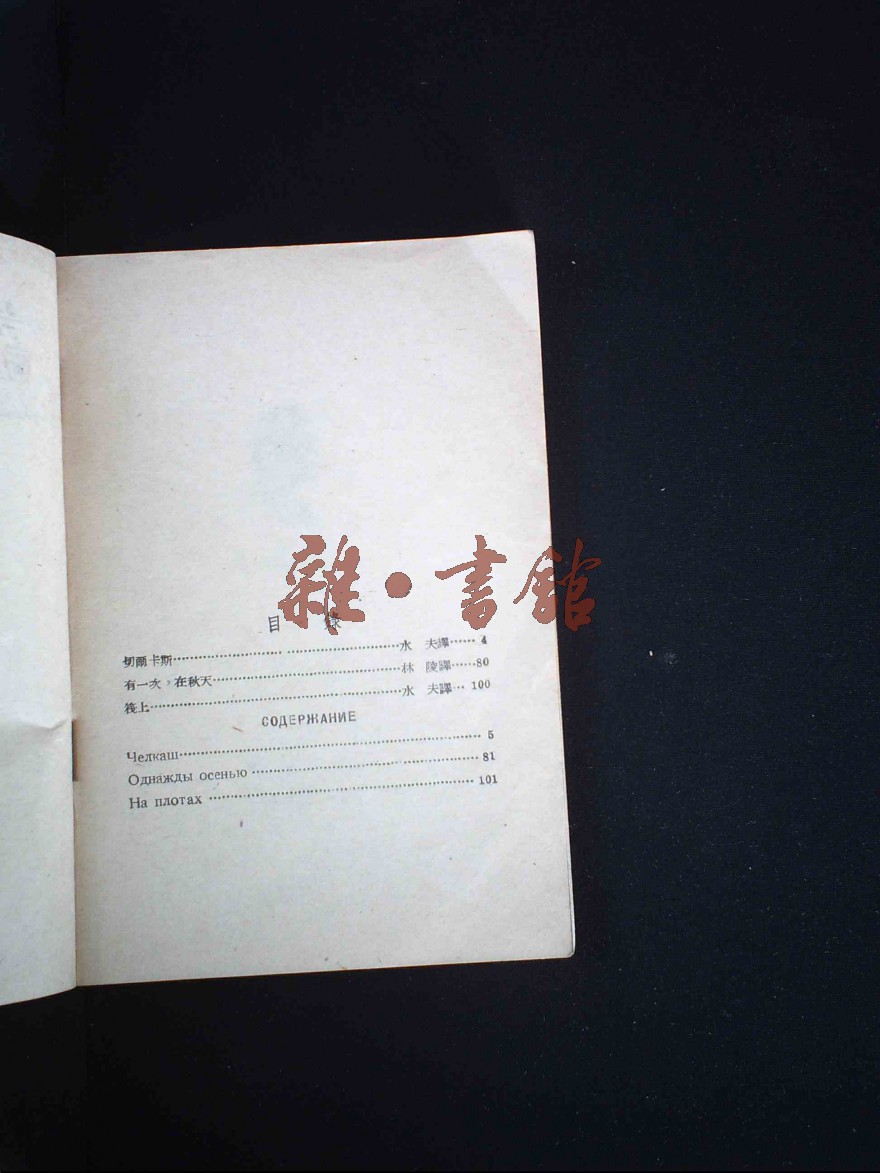 雜·書館
目 錄
切爾卡斯 水 夫譯 4
有一次，在秋天 林 陵譯 80
筏上 水 夫譯 100
СОДЕРЖАНИЕ
Челкаш 5
Однажды осенью 81
На плотах 101